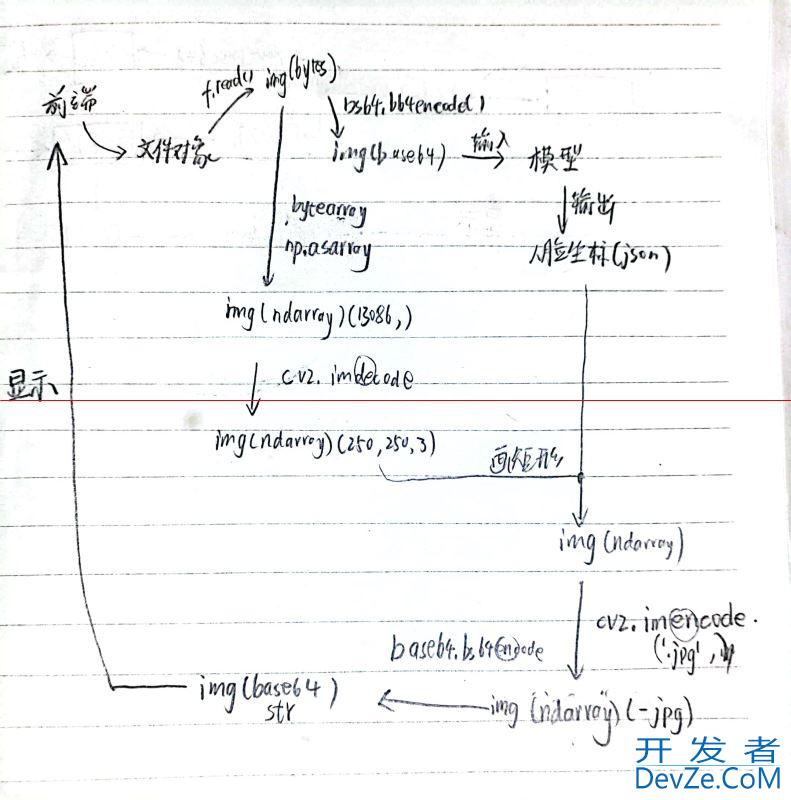 前端
f.read()
img(bytes)
文件对象
bs64.bb4encode()
img(base64)
输入
模型
.bytearray
np.asarray
输出
人脸坐标(json)
img(ndarray)(13086,)
cv2.imdecode
显示
img(ndarray)(250,250,3)
画矩形
img(ndarray)
cv2.imencode.
('.jpg',
base64.bs64encode
img(base64)
str
img(ndarray)(-jpg)
开发者
DevZe.CoM